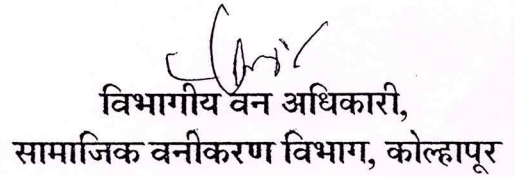 विभागीय वन अधिकारी,
सामाजिक वनीकरण विभाग, कोल्हापूर